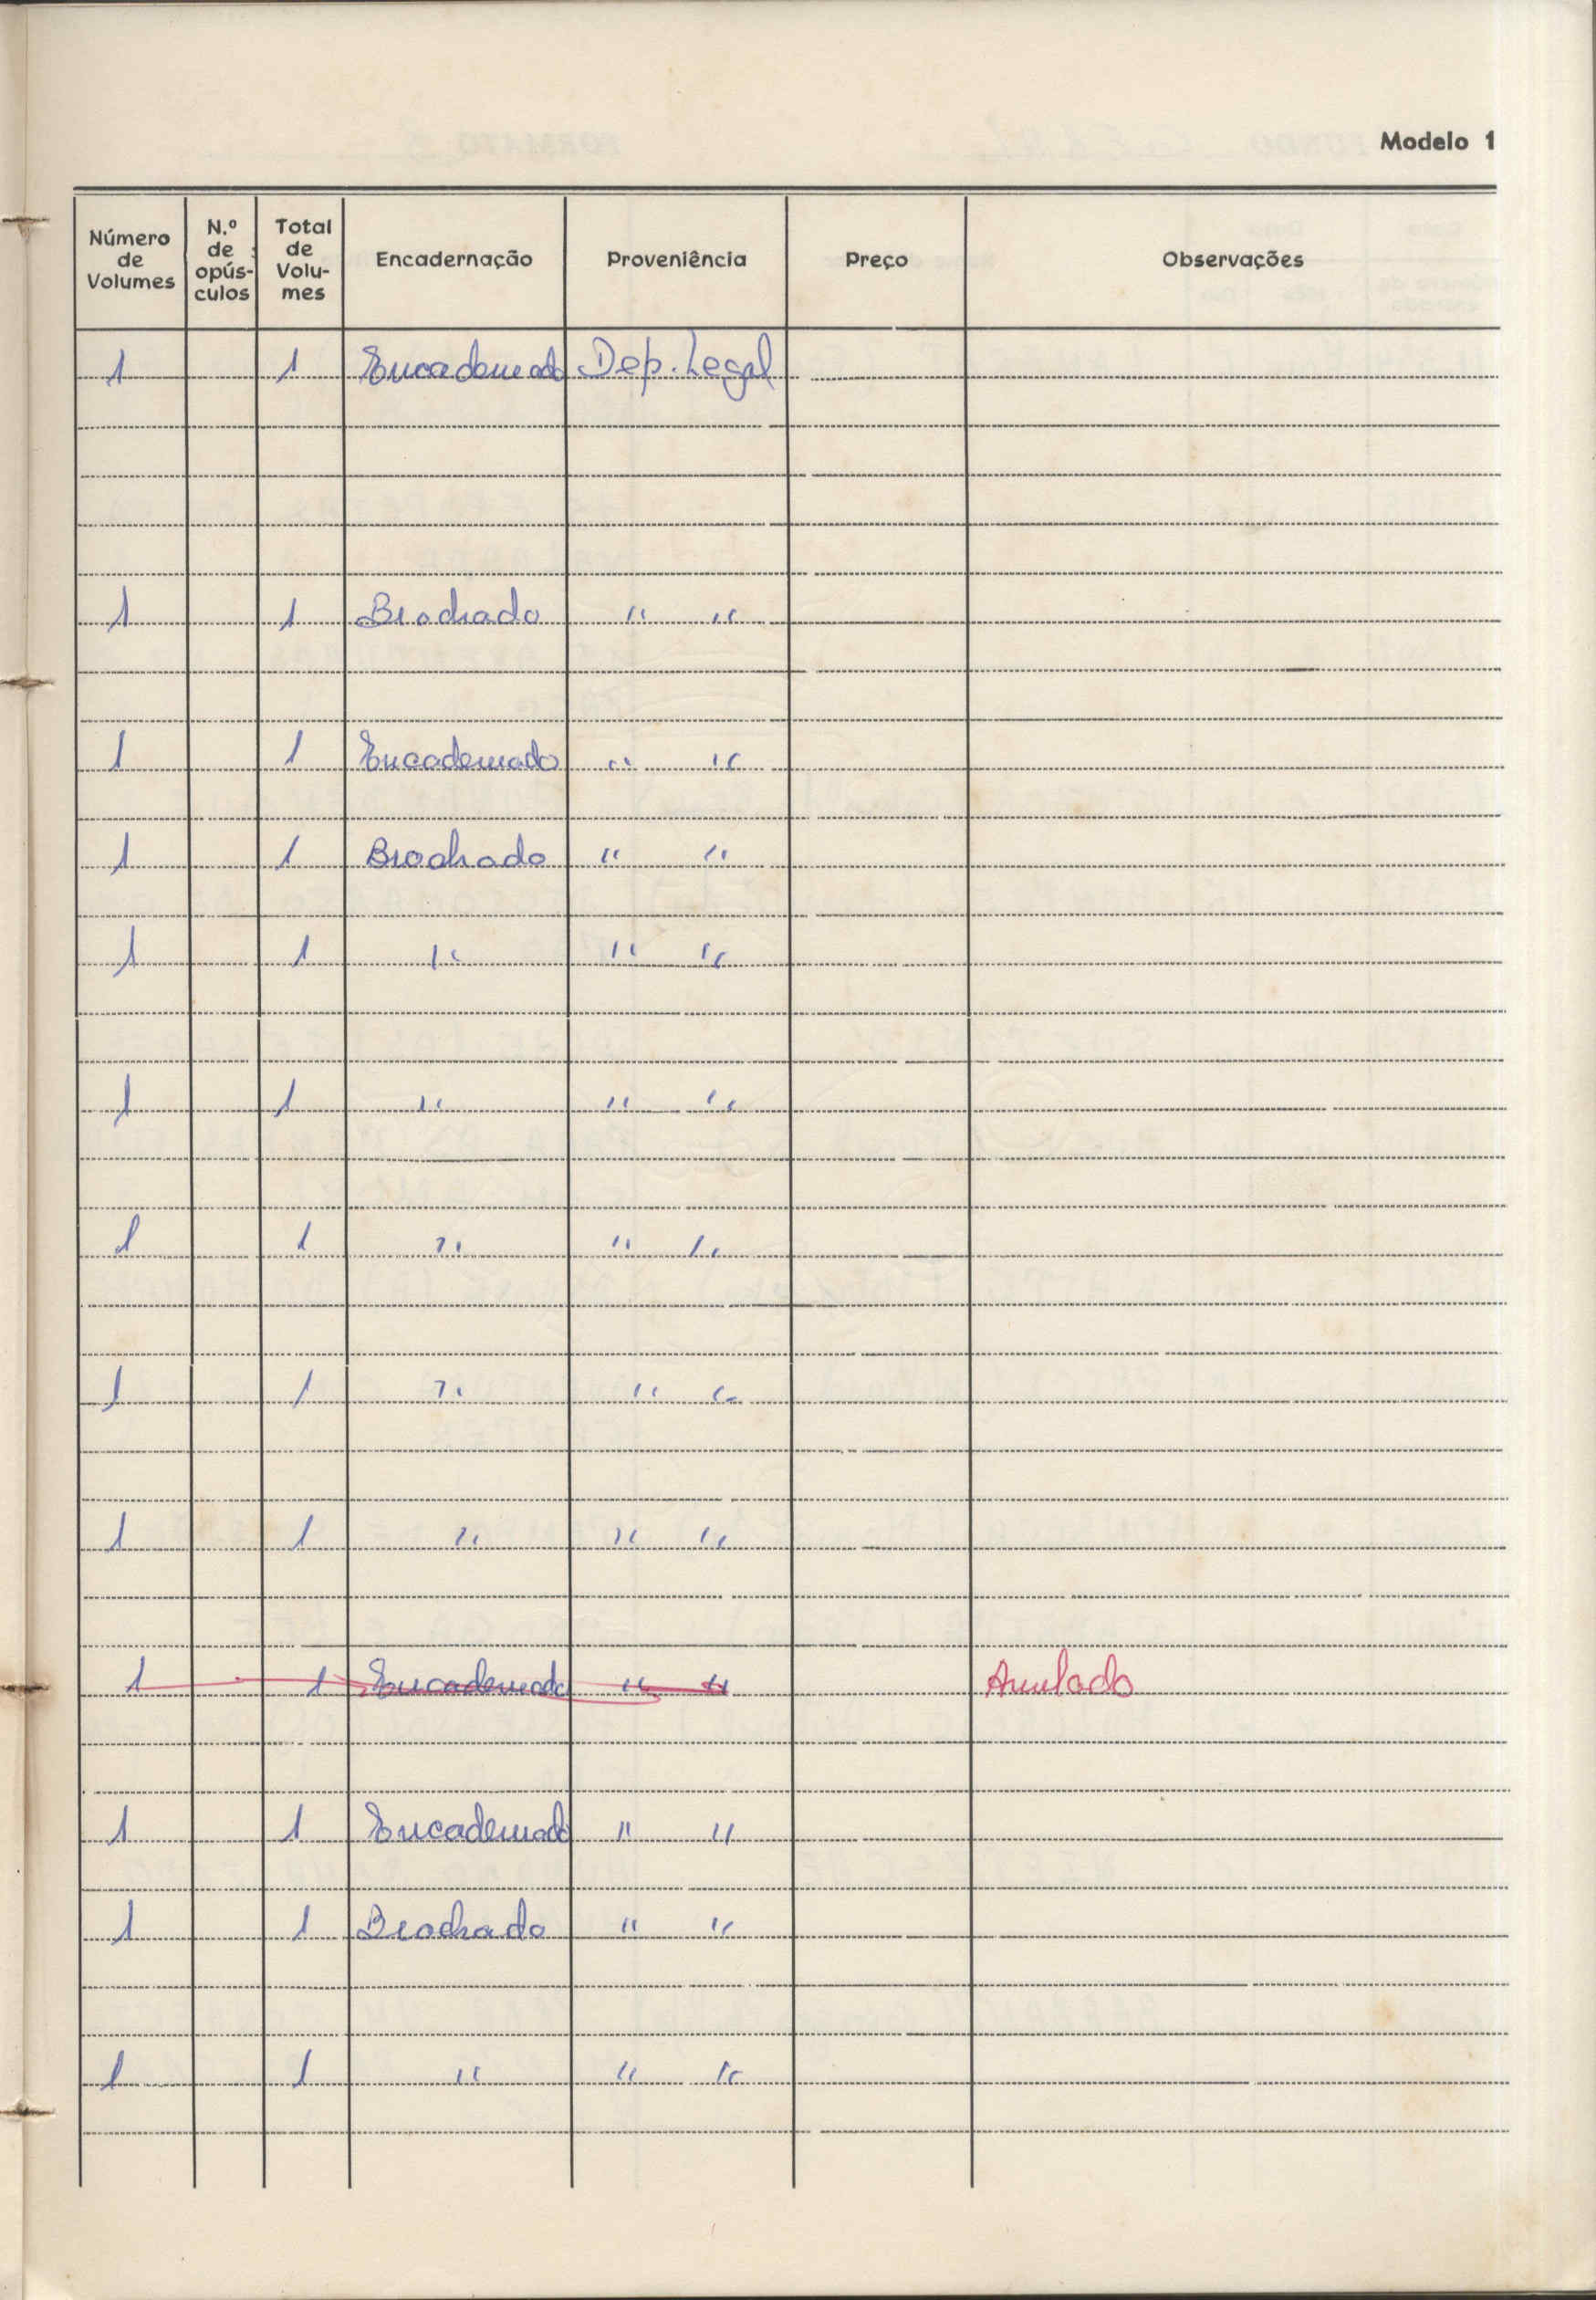 Modelo 1
Número de Volumes | N.º de opús-culos | Total de Volu-mes | Encadernação | Proveniência | Preço | Observações
1 1 Encadernado Dep. Legal
1 1 Brochado " "
1 1 Encadernado " "
1 1 Brochado " "
1 1 " " "
1 1 " " "
1 1 " " "
1 1 " " "
1 1 " " "
1 1 Encadernado " " Anulado
1 1 Encadernado " "
1 1 Brochado " "
1 1 " " "